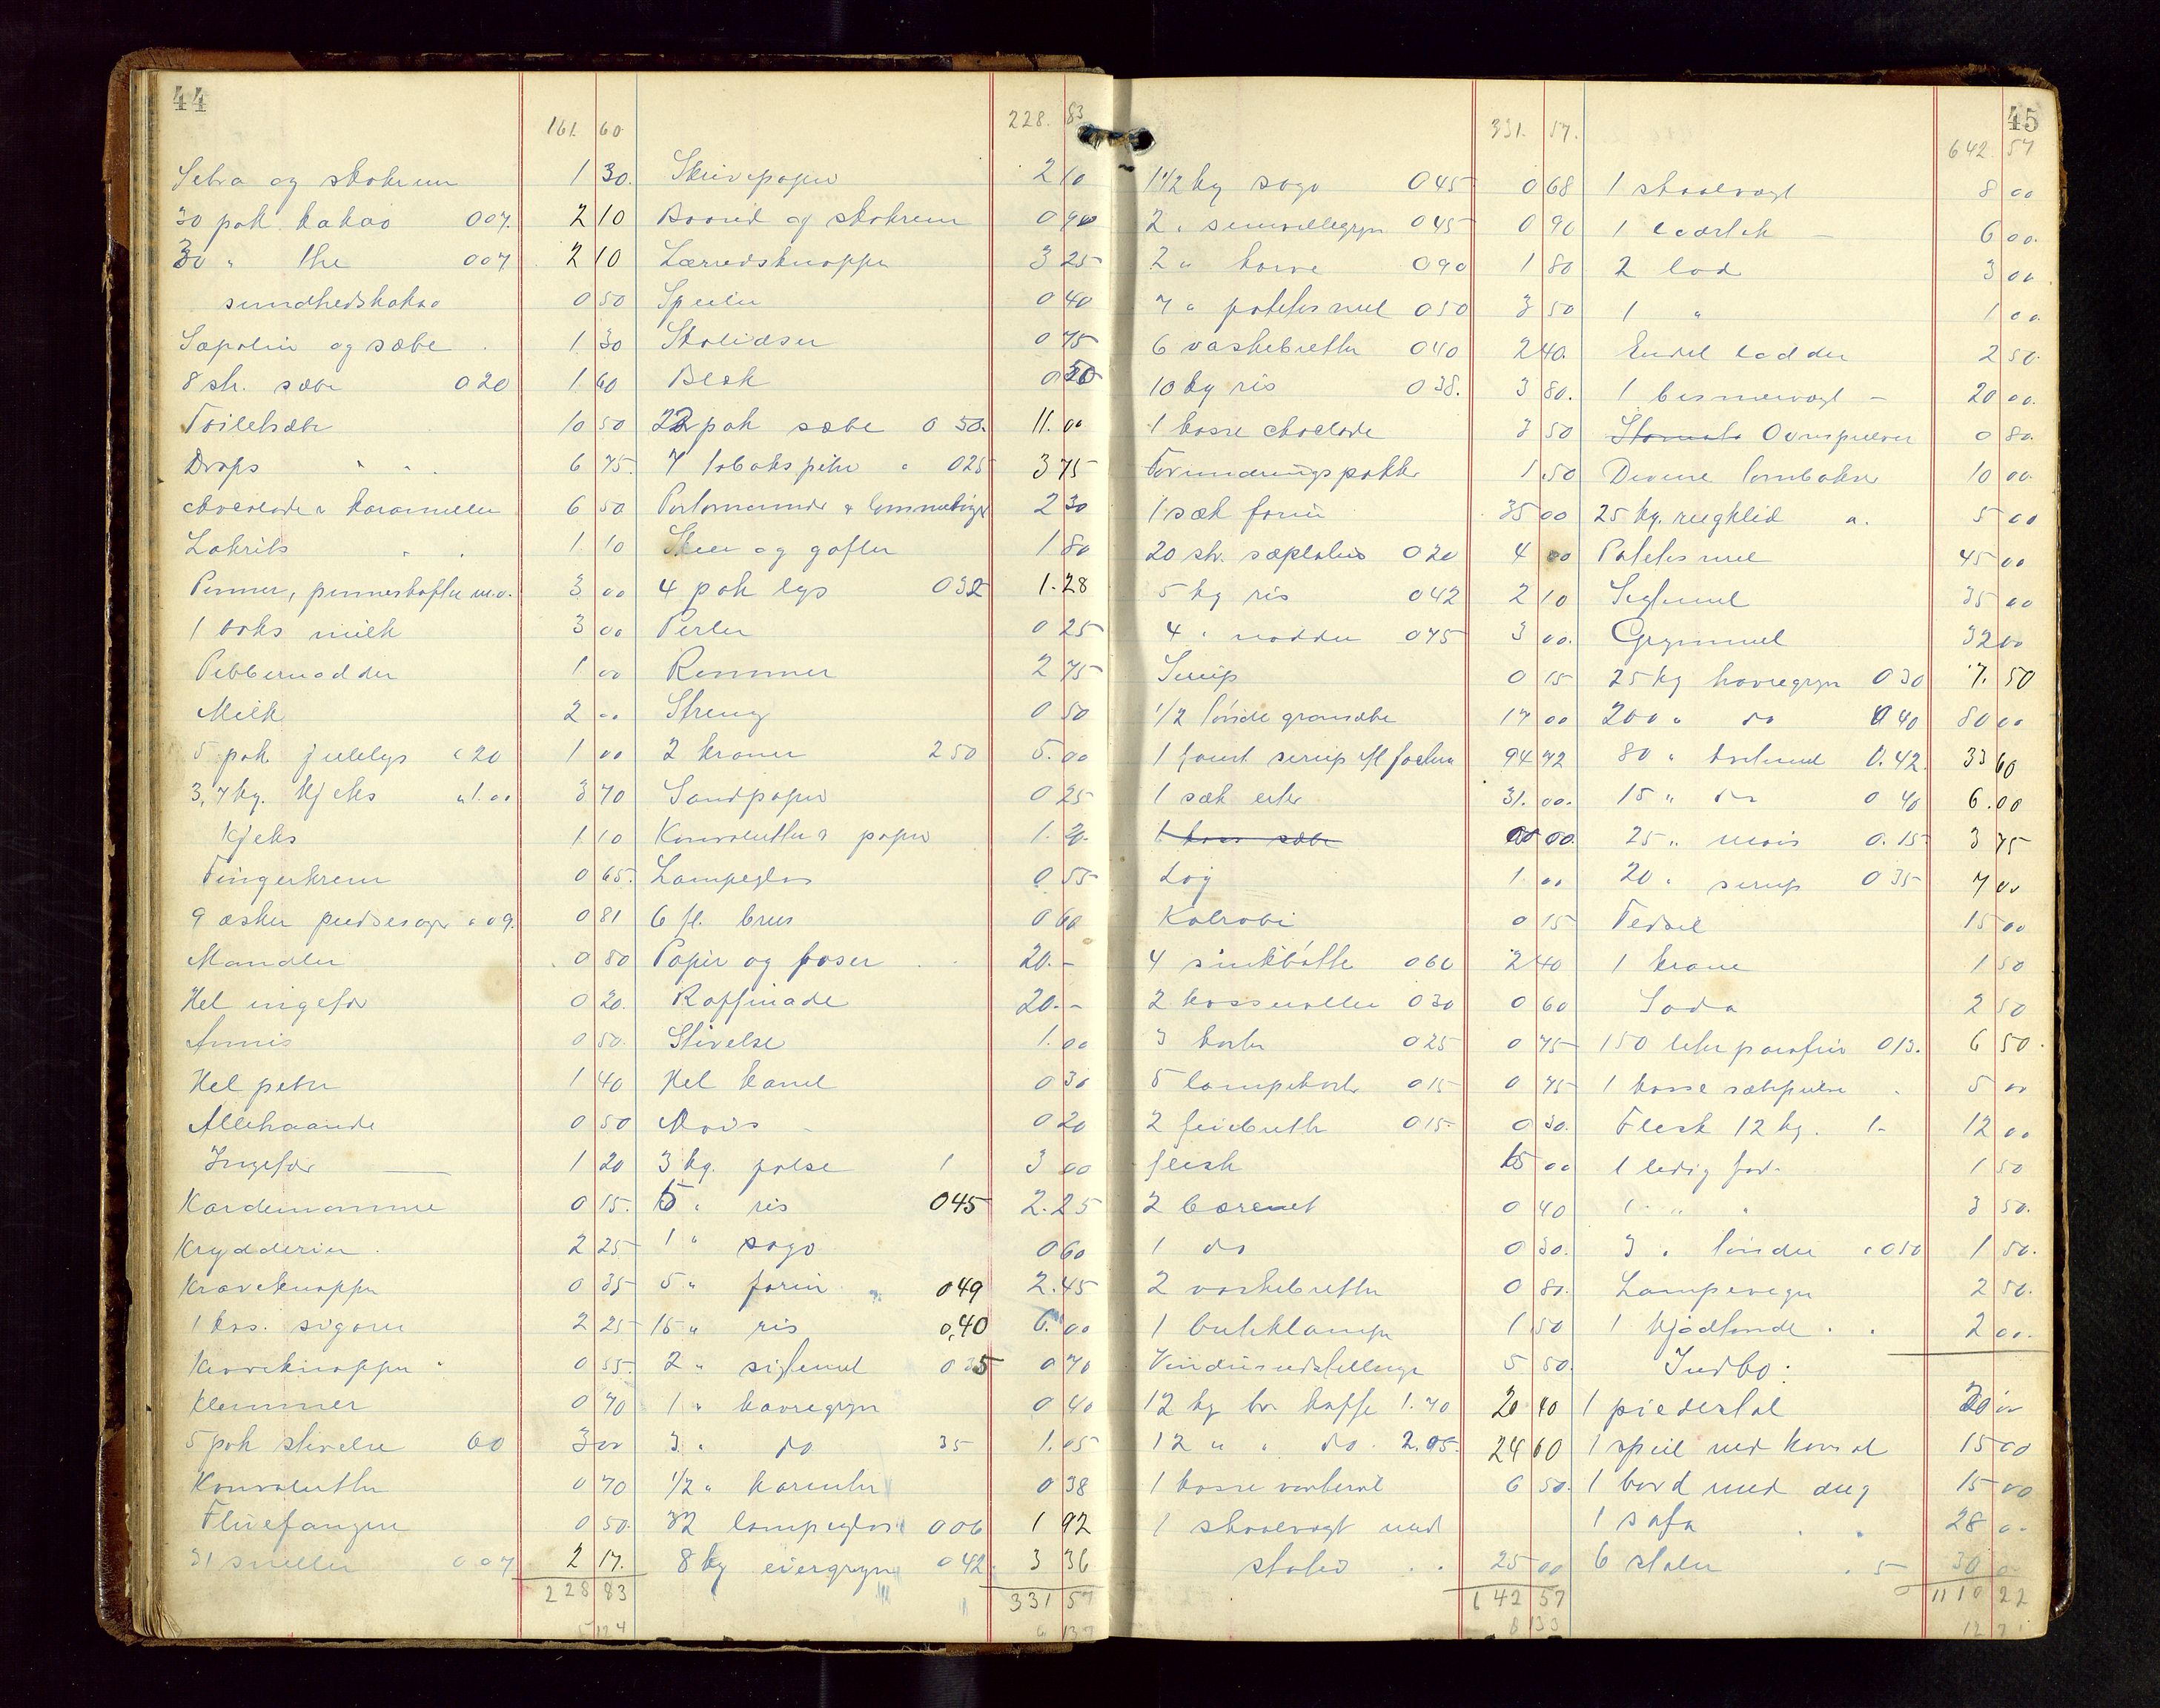 44
161. 60
Sebra og skokrem 1 30.
30 pak kakao 007. 2 10
30 " the 007 2 10
sundhedskakao 0 50
Sæpolin og sæbe 1 30
8 stk. sæbe 020 1 60
Toiletsæbe 10 50
Drops " " 6 75.
chocolade & karameller 6 50
Lakrits " " 1 10
Penner, penneskafter m.v. 3 00
1 boks milk 3 00
Pebbernødder 1 00
Milk 2 00
5 pak julelys " 20 1 00
3,7 kg. kjeks " 1.00 3 70
Kjeks 1 10
Fingerkrem 0 65.
9 æsker pudsesager " 09. 0 81
Mandler 0 80
Hel ingefær 0 20.
Annis 0 50.
Hel peber 1 40
Allehaande 0 50
Ingefær 1 20
Kardemomme 0 15.
Krydderier 2 25
Kraveknapper 0 35
1 kas. sigarer 2 25
Kraveknapper " 0 55.
Klemmer 0 70
5 pak stivelse 60 3 00
Konvolutter 0 70
Fluefangere 0 50.
31 sneller 0 07 2 17.
228 83
228. 83
Skrivepapir 2 10
Baand og skokrem 0 90
Lærredsknapper 3 25
Speiler 0 40
Skolidser 0 75
Blek 0 50
22 pak sæbe 0 50. 11. 00
7 tobakspiber " 025 3 75
Portemonnæ & lommebøger 2 30
Skeer og gafler 1 80
4 pak lys 0 32 1.28
Perler 0 25
Remmer 2 75
Streng 0 50
2 kraner 2 50 5.00
Sandpapir 0 25
Konvolutter & papir 1. 20
Lampeglas 0 55
6 fl. brus 0 60
Papir og poser 20.-
Raffinade 20.-
Stivelse 1.00
Hel kanel 0 30
Mais 0 20
3 kg. pølse 1 3 00
5 " ris 045 2.25
1 " sago 0 60
5 " farin " 049 2.45
15 " ris 0,40 6.00
2 " sigtemel 0 35 0 70
1 " havregryn 0 40
3 " do 35 1.05
1/2 " korenter 0 38
32 lampeglas 006 1 92
8 kg eiergryn 042 3 36
331 57
45
331. 57.
1 1/2 kg sago 045 0 68
2 " semullegryn 045 0 90
2 " 090 1 80
7 " potetesmel 050 3 50
6 vaskebretter 040 2 40.
10 kg ris 038. 3 80.
1 kasse chocolade 3 50
Forundringspakker 1.50
1 sæk farin 35 00
20 stk. sæpolin 020 4 00
5 kg ris 042 2 10
4 " nødder 075 3 00.
Sirup 0 15
1/2 tønde grønsæbe 17 00
1 fount sirup 94 72
1 sæk erter 31. 00.
1 kass sæbe 00 00.
Løg 1.00
Kolrabi 0 15
4 sinkbøtter 060 2 40
2 kasseroller 030 0 60
3 koster 025 0 75
5 lampekoster 015 0 75
2 feiebretter 015 0 30.
flesk 15 00
2 bærenet 0 40
1 do 0 30.
2 vaskebretter 0 80.
1 butiklampe 1 50
Vindusudstillinger 5 50.
12 kg br. kaffe 1.70 20 40
12 " " do. 2.05. 24 60
1 kasse 6 50.
1 skaalvægt med
skaler 25 00
642 57
642 57
1 skaalvægt 8 00
1 6 00.
2 lod 3 00
1 " 1 00.
Endel lodder 2 50.
1 bismervægt - 20 00.
Ovnspulver 0 80.
Diverse tombakker 10 00.
25 kg. rugklid a. 5 00
Potetesmel 45 00
Sigtemel 35 00
Grynmel 32 00
25 kg havregryn 030 7.50
200 " do 0 40 80 00
80 " 0.42. 33 60
15 " do 0 40 6.00
25 " mais 0.15 3 75
20 " sirup 0 35 7 00
Fedsel 15 00
1 krane 1 50
Soda 2 50
150 liter parafin 013. 6 50.
1 kasse sæbepulver 5 00
Flesk 12 kg. 1- 12 00
1 ledig fad. 1 50
1 " " 3 50.
3 " tønder " 050 1 50.
Lampeveger 2 50.
1 kjødtønde 2 00.
Indbo:
1 piedestal 20 00
1 speil med konsol 15 00
1 bord med dug 15 00
1 sofa 28 00
6 stoler 5 30 00
1110 22